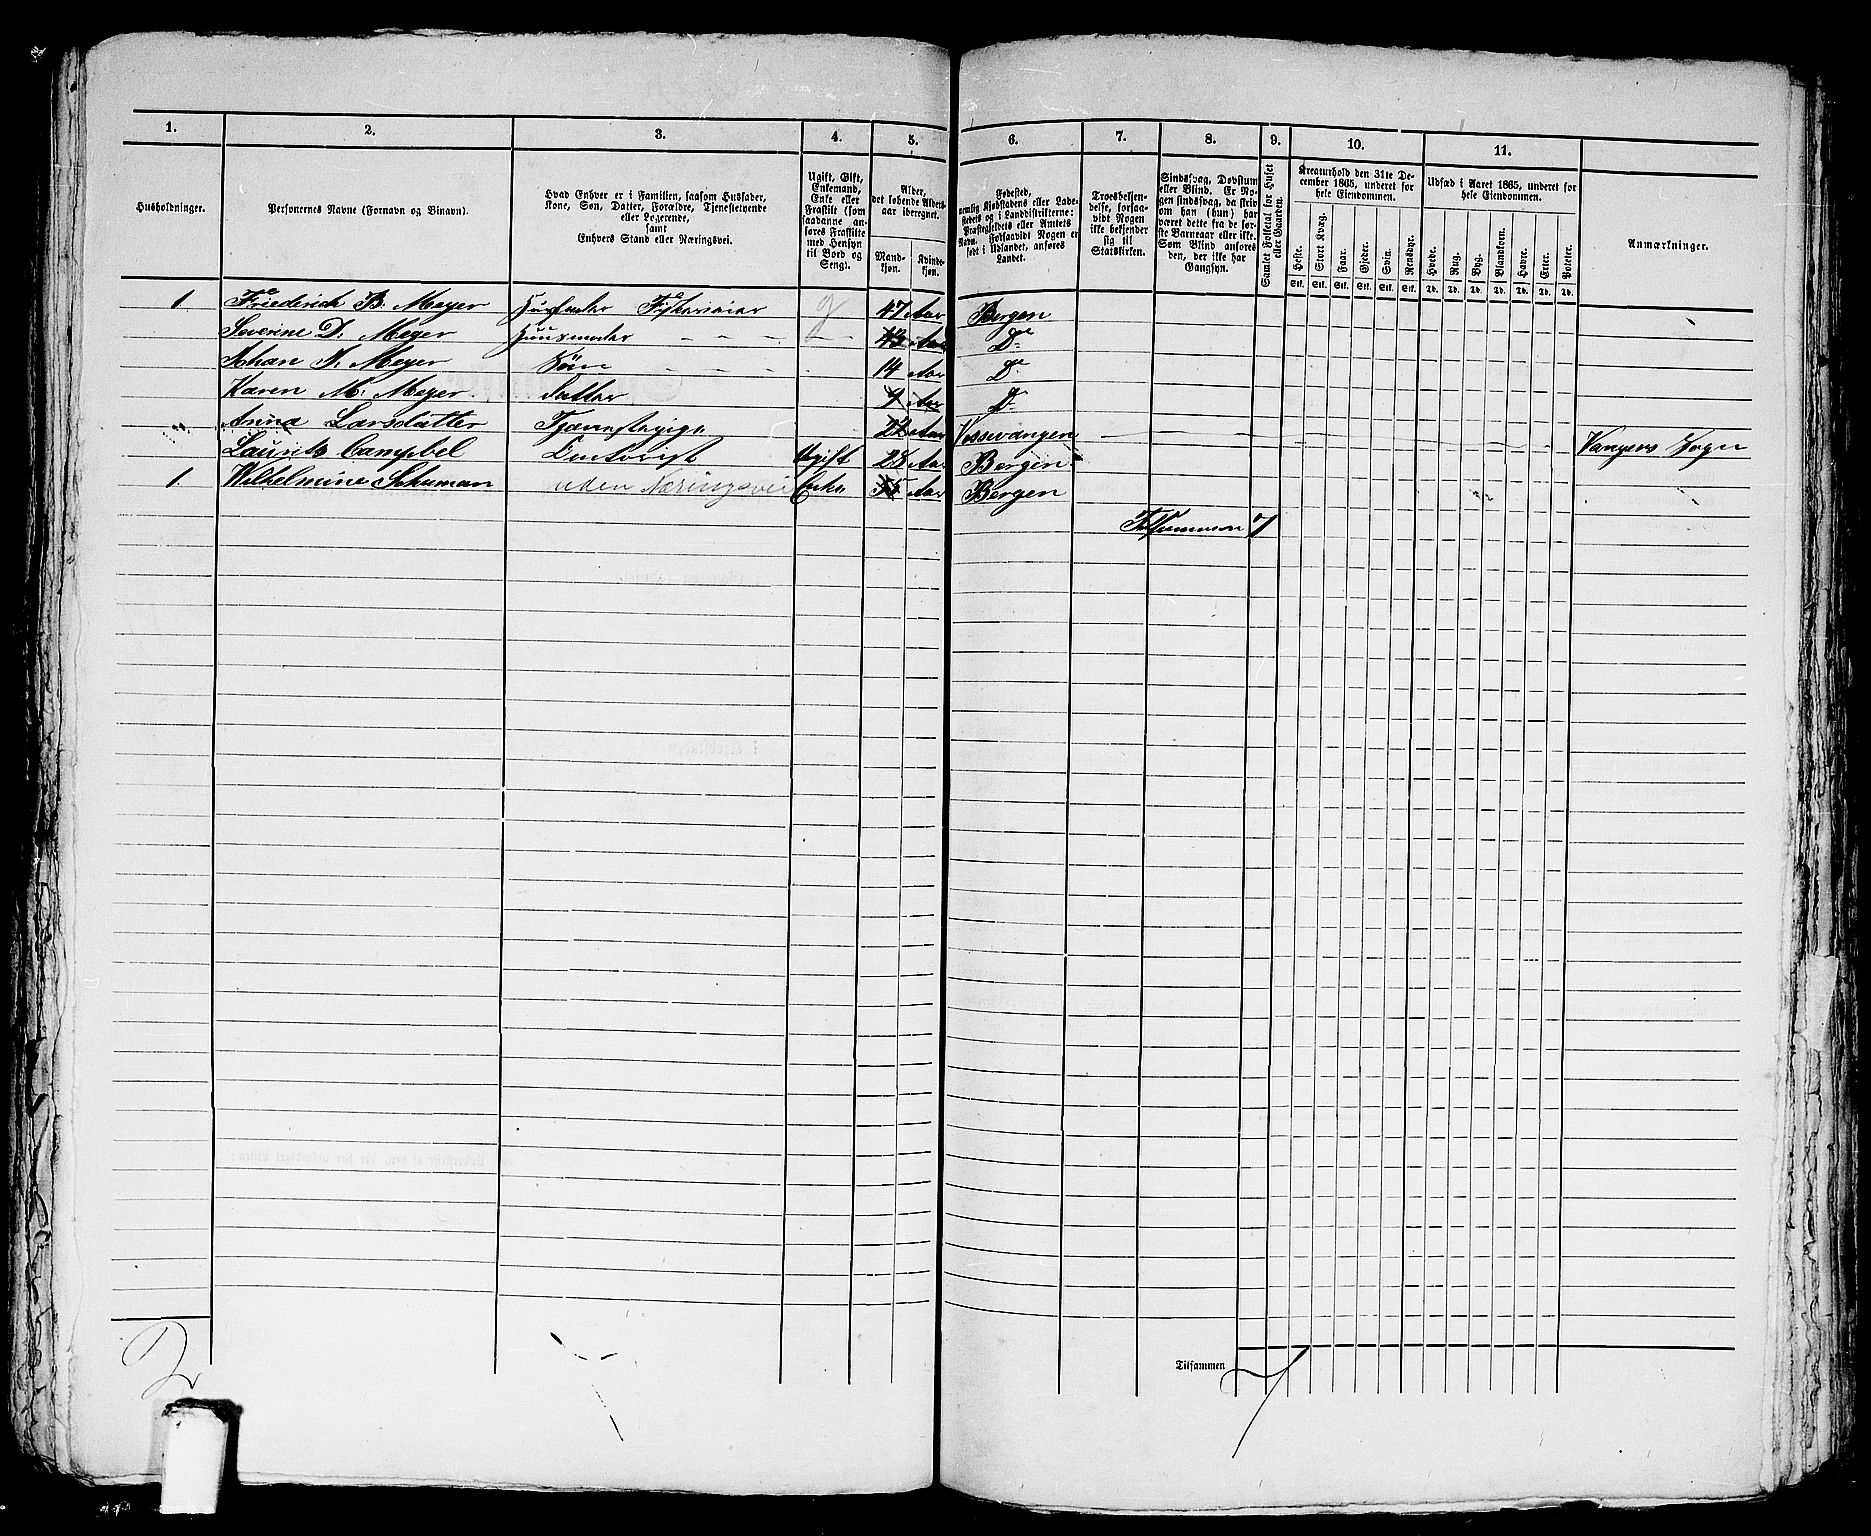 1. 2. 3. 4. 5. 6. 7. 8. 9. 10. 11.
Husholdninger.
Personernes Navne (Fornavn og Binavn).
Hvad Enhver er i Familien, saasom Husfader, Kone, Søn, Datter, Forældre, Tjenestetyende eller Logerende, samt Enhvers Stand eller Næringsvei.
Ugift, Gift, Enkemand, Enke eller Fraskilt (som saadanne anføres Fraskilte med Hensyn til Bord og Seng).
Alder, det løbende Alders-aar iberegnet.
Mand-kjøn. Kvinde-kjøn.
Fødested, nemlig Kjøbstadens eller Ladestedets og i Landdistrikterne: Præstegjeldets eller Amtets Navn. Forsaavidt Nogen er født i Udlandet, anføres Landet.
Troesbekjendelse, forsaavidt Nogen ikke bekjender sig til Statskirken.
Sindssvag, Døvstum eller Blind. Er Nogen sindssvag, da skriv om han (hun) har været dette fra de første Barneaar eller ikke. Som Blind anføres den, der ikke har Gangsyn.
Samlet Folketal for Huset eller Gaarden.
Kreaturhold den 31te December 1865, underet for hele Eiendommen.
Heste. Stort Kvæg. Faar. Gjeder. Svin. Rensdyr.
Stk. Stk. Stk. Stk. Stk. Stk.
Udsæd i Aaret 1865, underet for hele Eiendommen.
Hvede. Rug. Byg. Blandkorn. Havre. Erter. Poteter.
Td. Td. Td. Td. Td. Td. Td.
Anmærkninger.
1 Friederich B. Meyer Huusfader g 47 Aar Bergen
Severine D. Meyer Huusmoder 43 Aar Do
Johan F. Meyer Søn 14 Aar Do
Karen M. Meyer Datter 9 Aar Do
" Anna Larsdatter Tjenestepige 22 Aar Vossevangen Vangens Sogn
Laurits Campbel Contorist Ugift 28 Aar Bergen
1 Wilhelmine Schuman uden Næringsvei Enke Aar Bergen
Tilsammen 7
2
Tilsammen 7